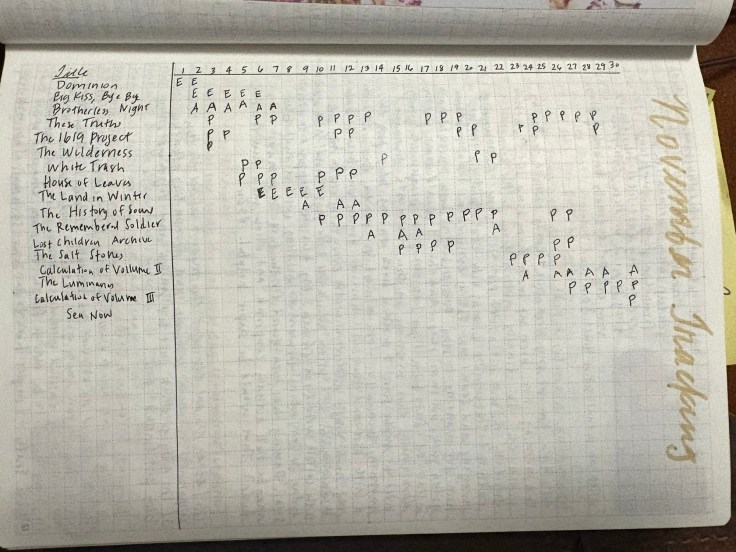 Title 1 2 3 4 5 6 7 8 9 10 11 12 13 14 15 16 17 18 19 20 21 22 23 24 25 26 27 28 29 30
Dominion E E
Big Kiss, Bye Bye E E E E E
Brotherless Night A A A A A A
These Truths P P P P P P P P P P P P P P P
The 1619 Project P P P P P P P P P
The Wilderness P P P P
White Trash P P
House of Leaves P P P P P P
The Land in Winter E E E E E
The History of Sound A A A
The Remembered Soldier P P P P P P P P P P P P P P
Lost Children Archive A A A A
The Salt Stones P P P P P P
Calculation of Vollume II P P P P
The Luminaries A A A A A A
Calculation of Volume III P P P P P
Sea Now P
November Tracking